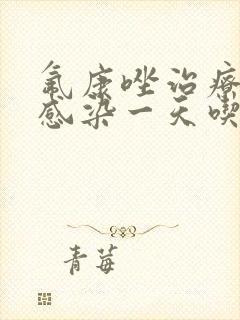 氟康唑治疗
感染一天喫
青莓